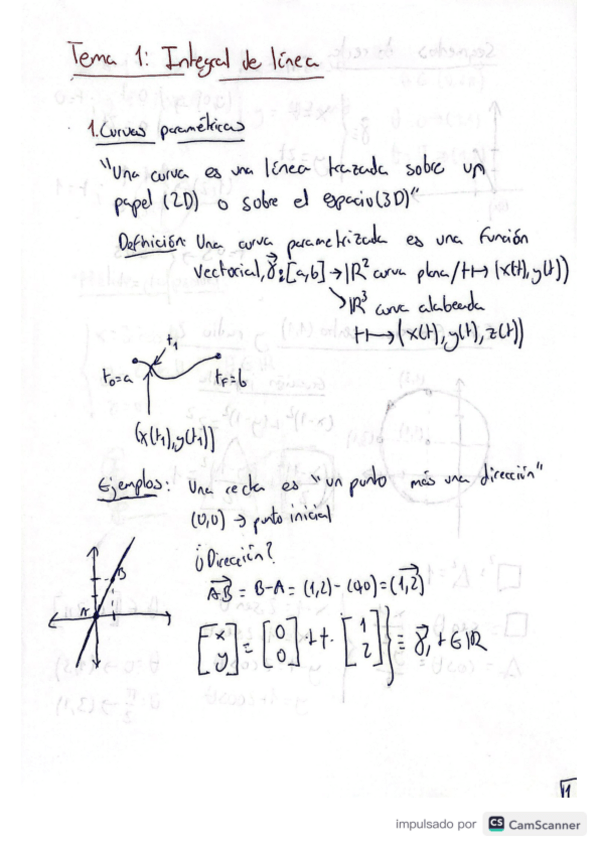 Tema 1: Integral de línea
1. Curvas paramétricas
"Una curva es una línea trazada sobre un
papel (2D) o sobre el espacio (3D)"
Definición: Una curva parametrizada es una función
vectorial, γ⃗: [a,b] → ℝ² curva plana / t ↦ (x(t), y(t))
↘ ℝ³ curva alabeada
t ↦ (x(t), y(t), z(t))
t₁
t₀=a
t_F=b
(x(t₁), y(t₁))
Ejemplos: Una recta es "un punto más una dirección"
(0,0) → punto inicial
¿Dirección?
AB⃗ = B-A = (1,2) - (0,0) = (1,2)
B
A
[x y] = [0 0] + t · [1 2] } ≡ γ⃗, t ∈ ℝ
1
impulsado por CS CamScanner